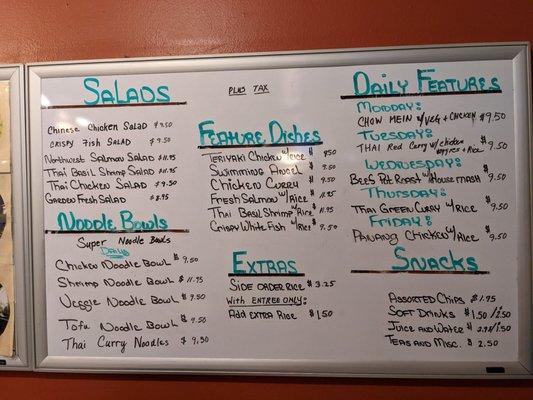 Salads
Chinese Chicken Salad $9.50
Crispy Fish Salad $9.50
Northwest Salmon Salad $11.95
Thai Basil Shrimp Salad $11.95
Thai Chicken Salad $9.50
Garden Fresh Salad $8.95
Noodle Bowls
Super Noodle Bowls
Daily
Chicken Noodle Bowl $9.50
Shrimp Noodle Bowl $11.95
Veggie Noodle Bowl $9.50
Tofu Noodle Bowl $9.50
Thai Curry Noodles $9.50
Plus Tax
Feature Dishes
Teriyaki Chicken w/Rice $9.50
Swimming Angel $9.50
Chicken Curry $9.50
Fresh Salmon w/Rice $11.95
Thai Basil Shrimp w/Rice $11.95
Crispy White Fish w/Rice $9.50
Extras
Side Order Rice $3.25
With Entree Only:
Add Extra Rice $1.50
Daily Features
Monday:
Chow Mein w/Veg + Chicken $9.50
Tuesday:
Thai Red Curry w/Chicken Veggies + Rice $9.50
Wednesday:
Beef Pot Roast w/House Mash $9.50
Thursday:
Thai Green Curry w/Rice $9.50
Friday:
Panang Chicken w/Rice $9.50
Snacks
Assorted Chips $1.95
Soft Drinks $1.50/
Juice and Water $
Teas and Misc. $2.50